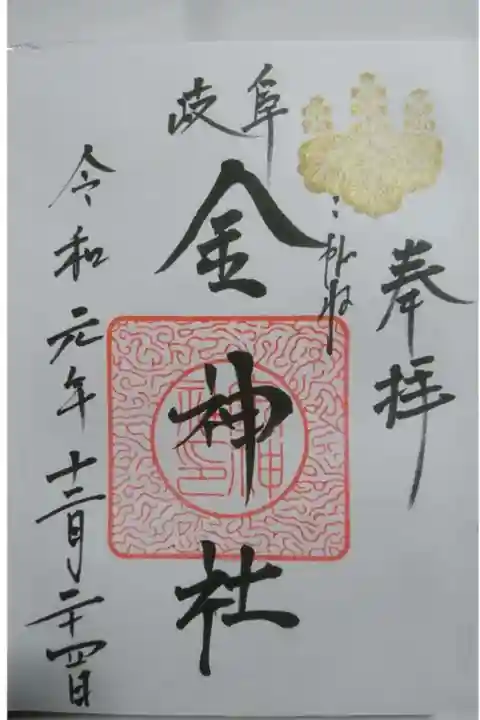 奉拝
岐阜
こがね
金神社
令和元年十二月二十四日